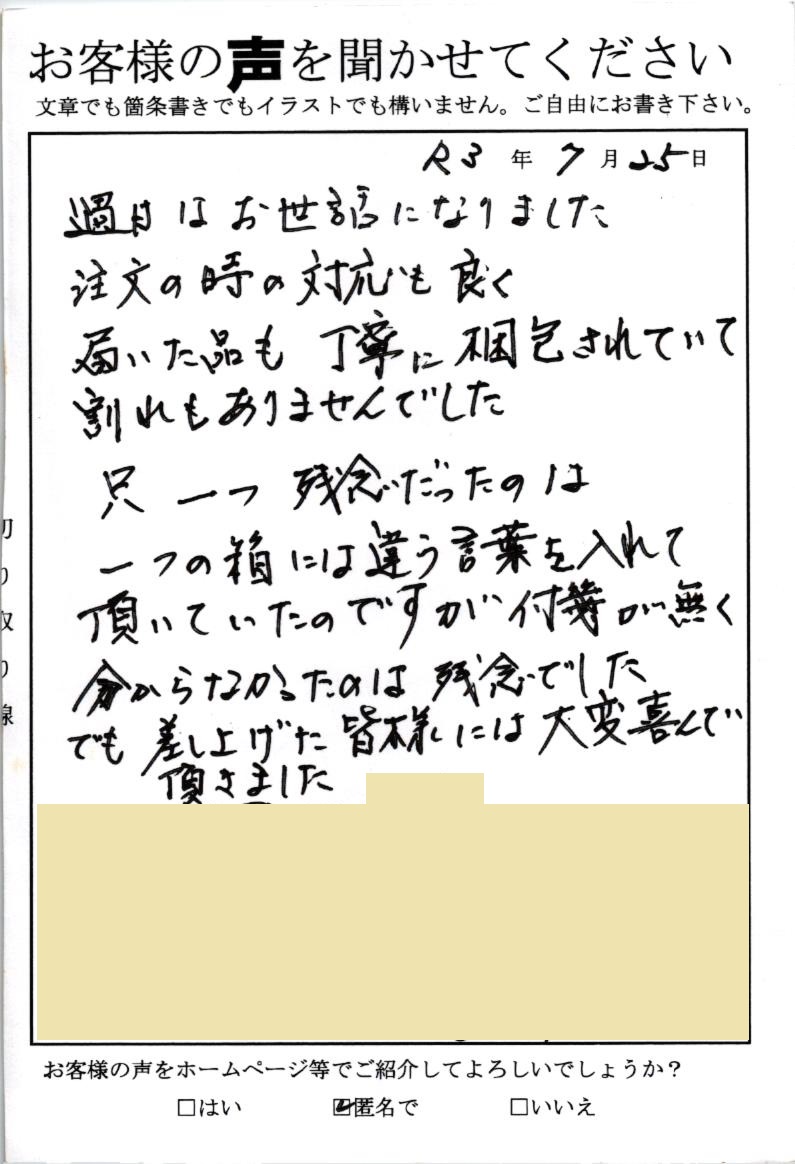 お客様の声を聞かせてください
文章でも箇条書きでもイラストでも構いません。ご自由にお書き下さい。
R3年7月25日
過日はお世話になりました
注文の時の対応も良く
届いた品も 丁寧に梱包されていて
割れもありませんでした
只 一つ 残念だったのは
一つの箱には違う言葉を入れて
頂いていたのですが 付箋が無く
分からなかったのは 残念でした
でも 差し上げた 皆様には 大変喜んで
頂きました
お客様の声をホームページ等でご紹介してよろしいでしょうか？
□はい ☑匿名で □いいえ
取り線